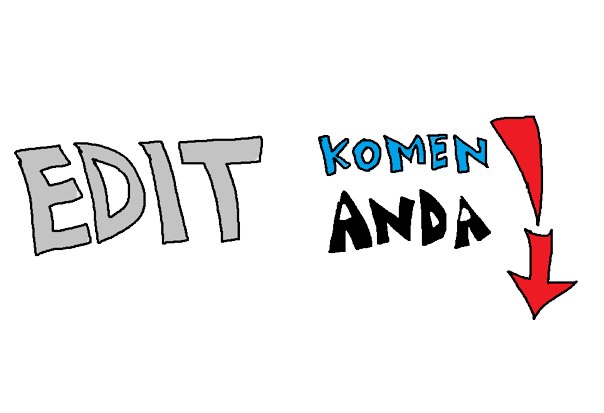 EDIT
KOMEN
ANDA!